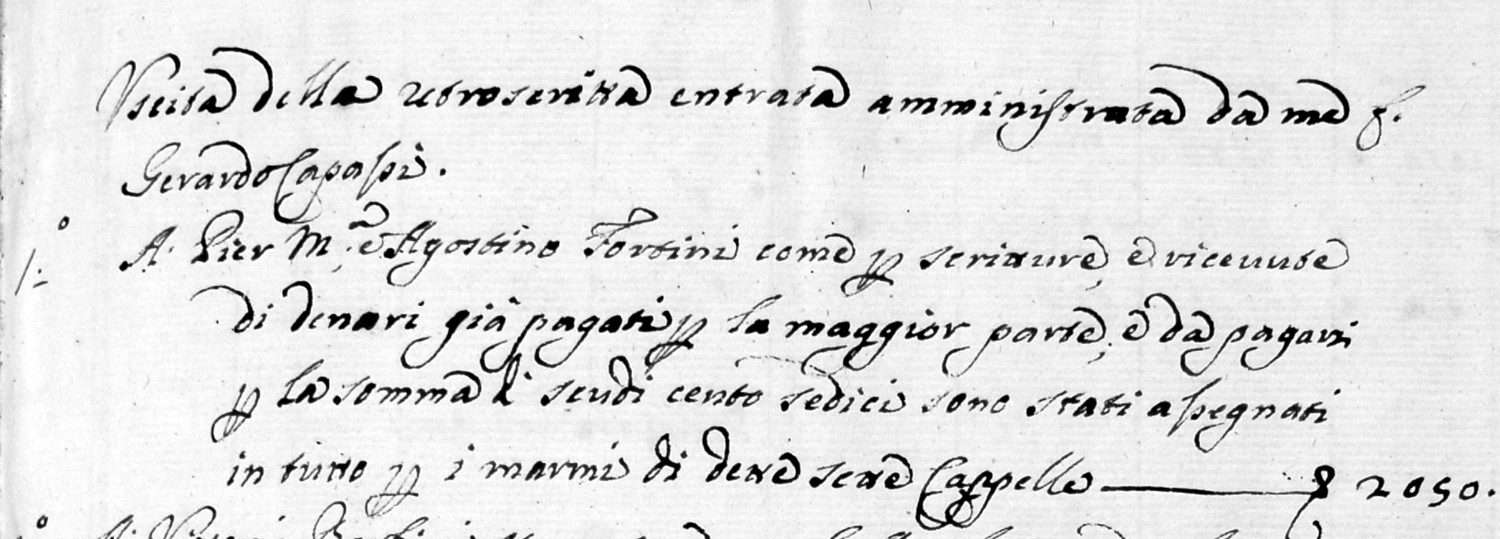 Uscita della retroscritta entrata amministrata da me f.
Gerardo Capassi.
1.° A. Pier M.ª e Agostino Fortini come p scritture, e riceuute
di denari già pagati p la maggior parte, e da pagarsi
p la somma di scudi cento sedici sono stati assegnati
in tutto p i marmi di dette sette Cappelle 2050.